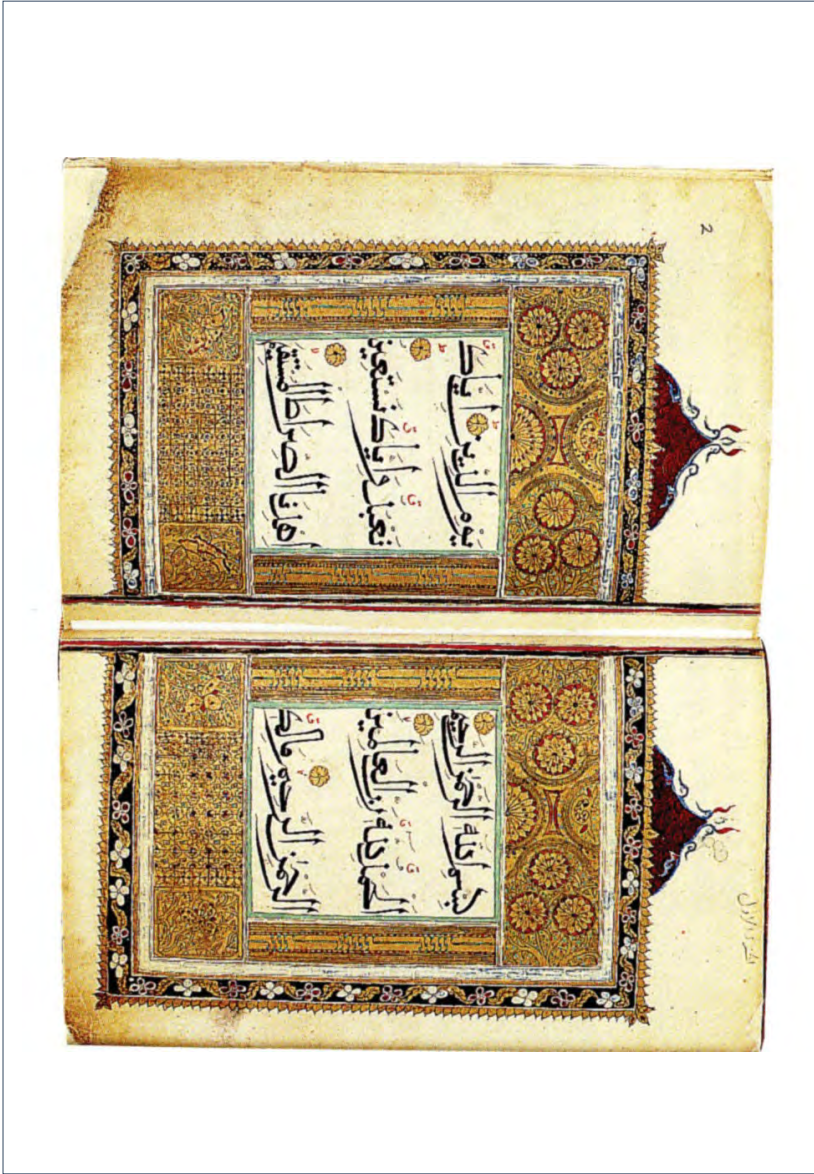 بسم الله الرحمن الرحيم
الحمد لله رب العالمين
الرحمن الرحيم ملك
2
يوم الدين اياك
نعبد واياك نستعين
اهدنا الصراط المستقيم